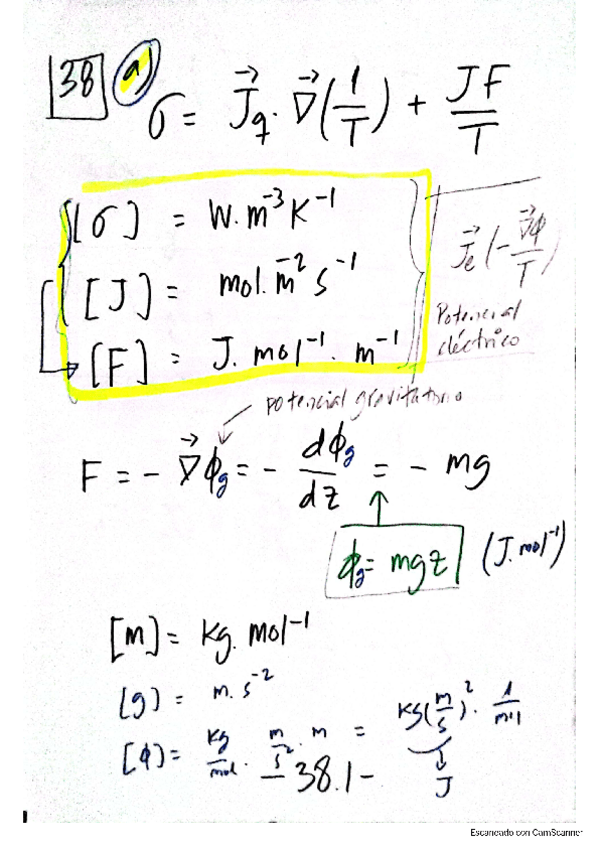 38 a) σ = J⃗q · ∇⃗(1/T) + JF/T
[σ] = W.m⁻³K⁻¹
[J] = mol.m⁻²s⁻¹
[F] = J.mol⁻¹.m⁻¹
J⃗e(-∇⃗ϕ/T)
Potencial
eléctrico
potencial gravitatorio
F = - ∇⃗ϕg = - dϕg/dz = - mg
ϕg = mgz (J.mol⁻¹)
[m] = kg.mol⁻¹
[g] = m.s⁻²
[ϕ] = kg/mol . m/s² . m = kg(m/s)² . 1/mol
J
- 38.1 -
Escaneado con CamScanner